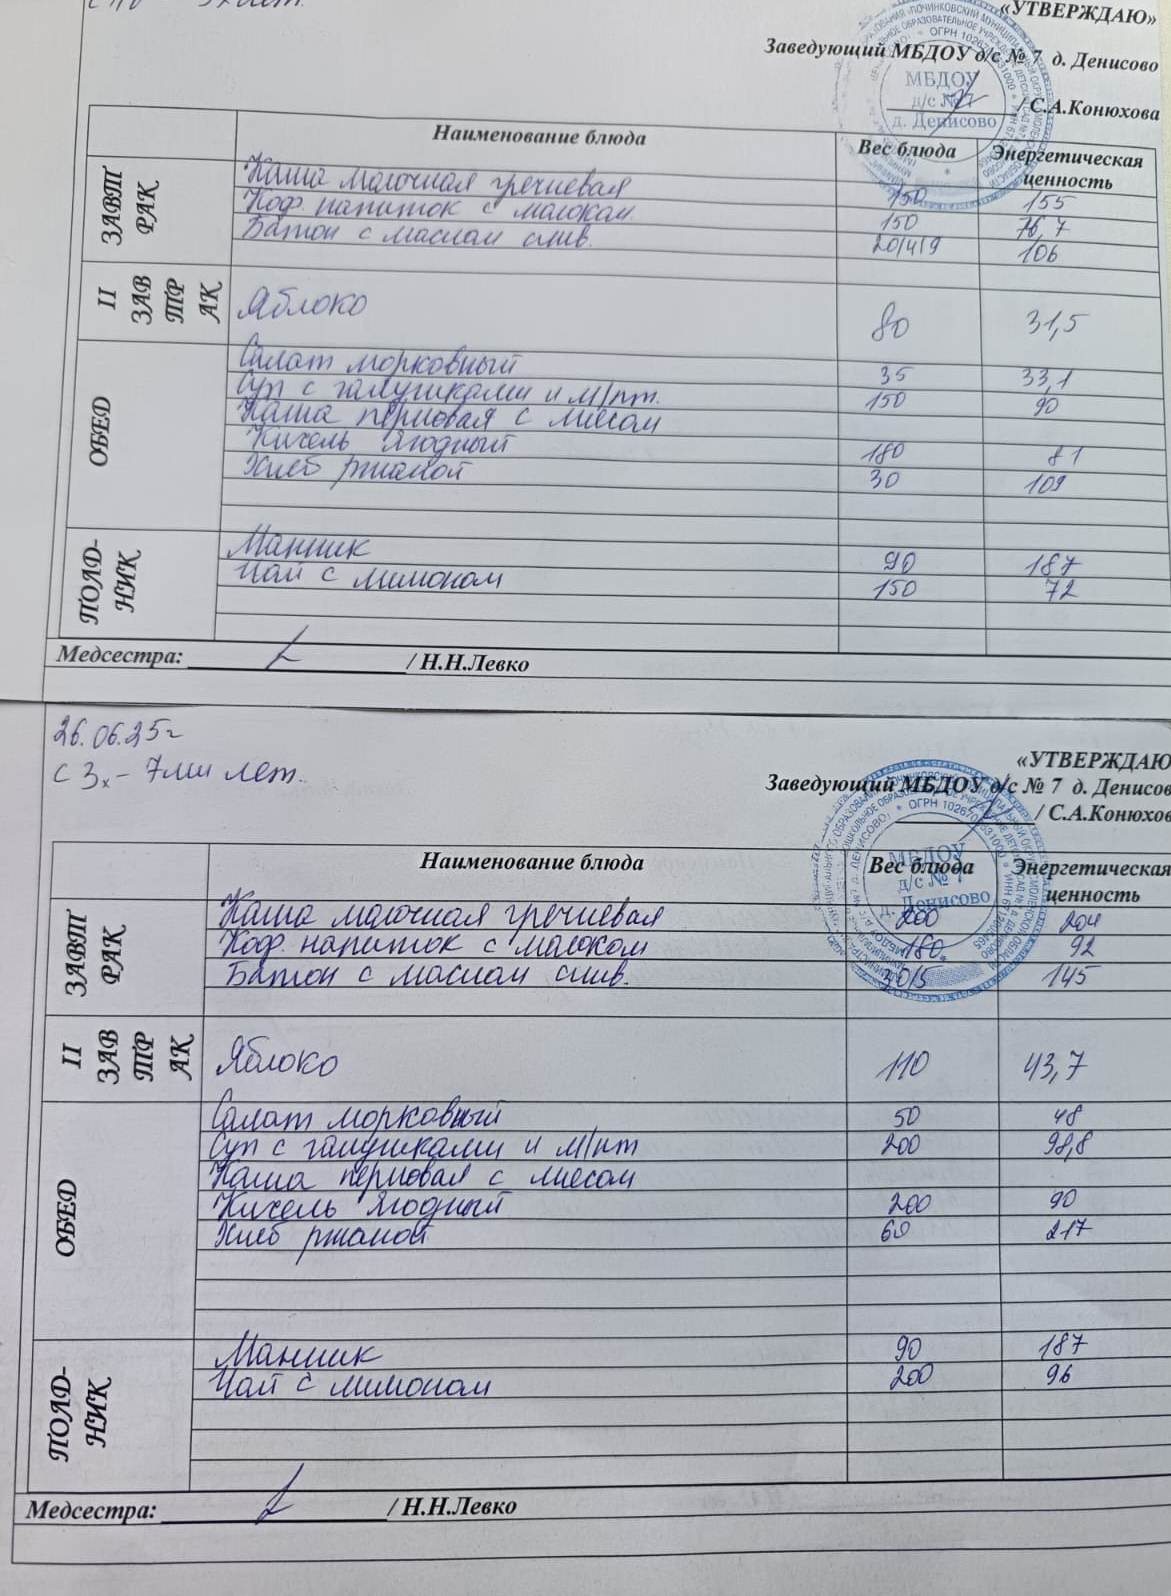 «УТВЕРЖДАЮ»
Заведующий МБДОУ д/с № 7 д. Денисово
/ С.А.Конюхова
МБДОУ
д/с № 7
д. Денисово
Наименование блюда Вес блюда Энергетическая ценность
ЗАВТРАК
Каша молочная гречневая 150 155
Коф. напиток с молоком 150 76,7
Батон с маслом слив. 106
II ЗАВТРАК
Яблоко 80 31,5
ОБЕД
Салат морковный 35 33,1
Суп с галушками и м/пт. 150 90
Каша перловая с мясом
Кисель ягодный 180 81
Хлеб ржаной 30 109
ПОЛД-НИК
Манник 90 187
Чай с лимоном 150 72
Медсестра: / Н.Н.Левко
26.06.25г
с 3х - 7ми лет.
«УТВЕРЖДАЮ
Заведующий МБДОУ д/с № 7 д. Денисов
/ С.А.Конюхов
МБДОУ
д/с № 7
д. Денисово
Наименование блюда Вес блюда Энергетическая ценность
ЗАВТРАК
Каша молочная гречневая 200 204
Коф. напиток с молоком 180 92
Батон с маслом слив. 30/5 145
II ЗАВТРАК
Яблоко 110 43,7
ОБЕД
Салат морковный 50 48
Суп с галушками и м/пт 200 98,8
Каша перловая с мясом
Кисель ягодный 200 90
Хлеб ржаной 60 217
ПОЛД-НИК
Манник 90 187
Чай с лимоном 200 96
Медсестра: / Н.Н.Левко